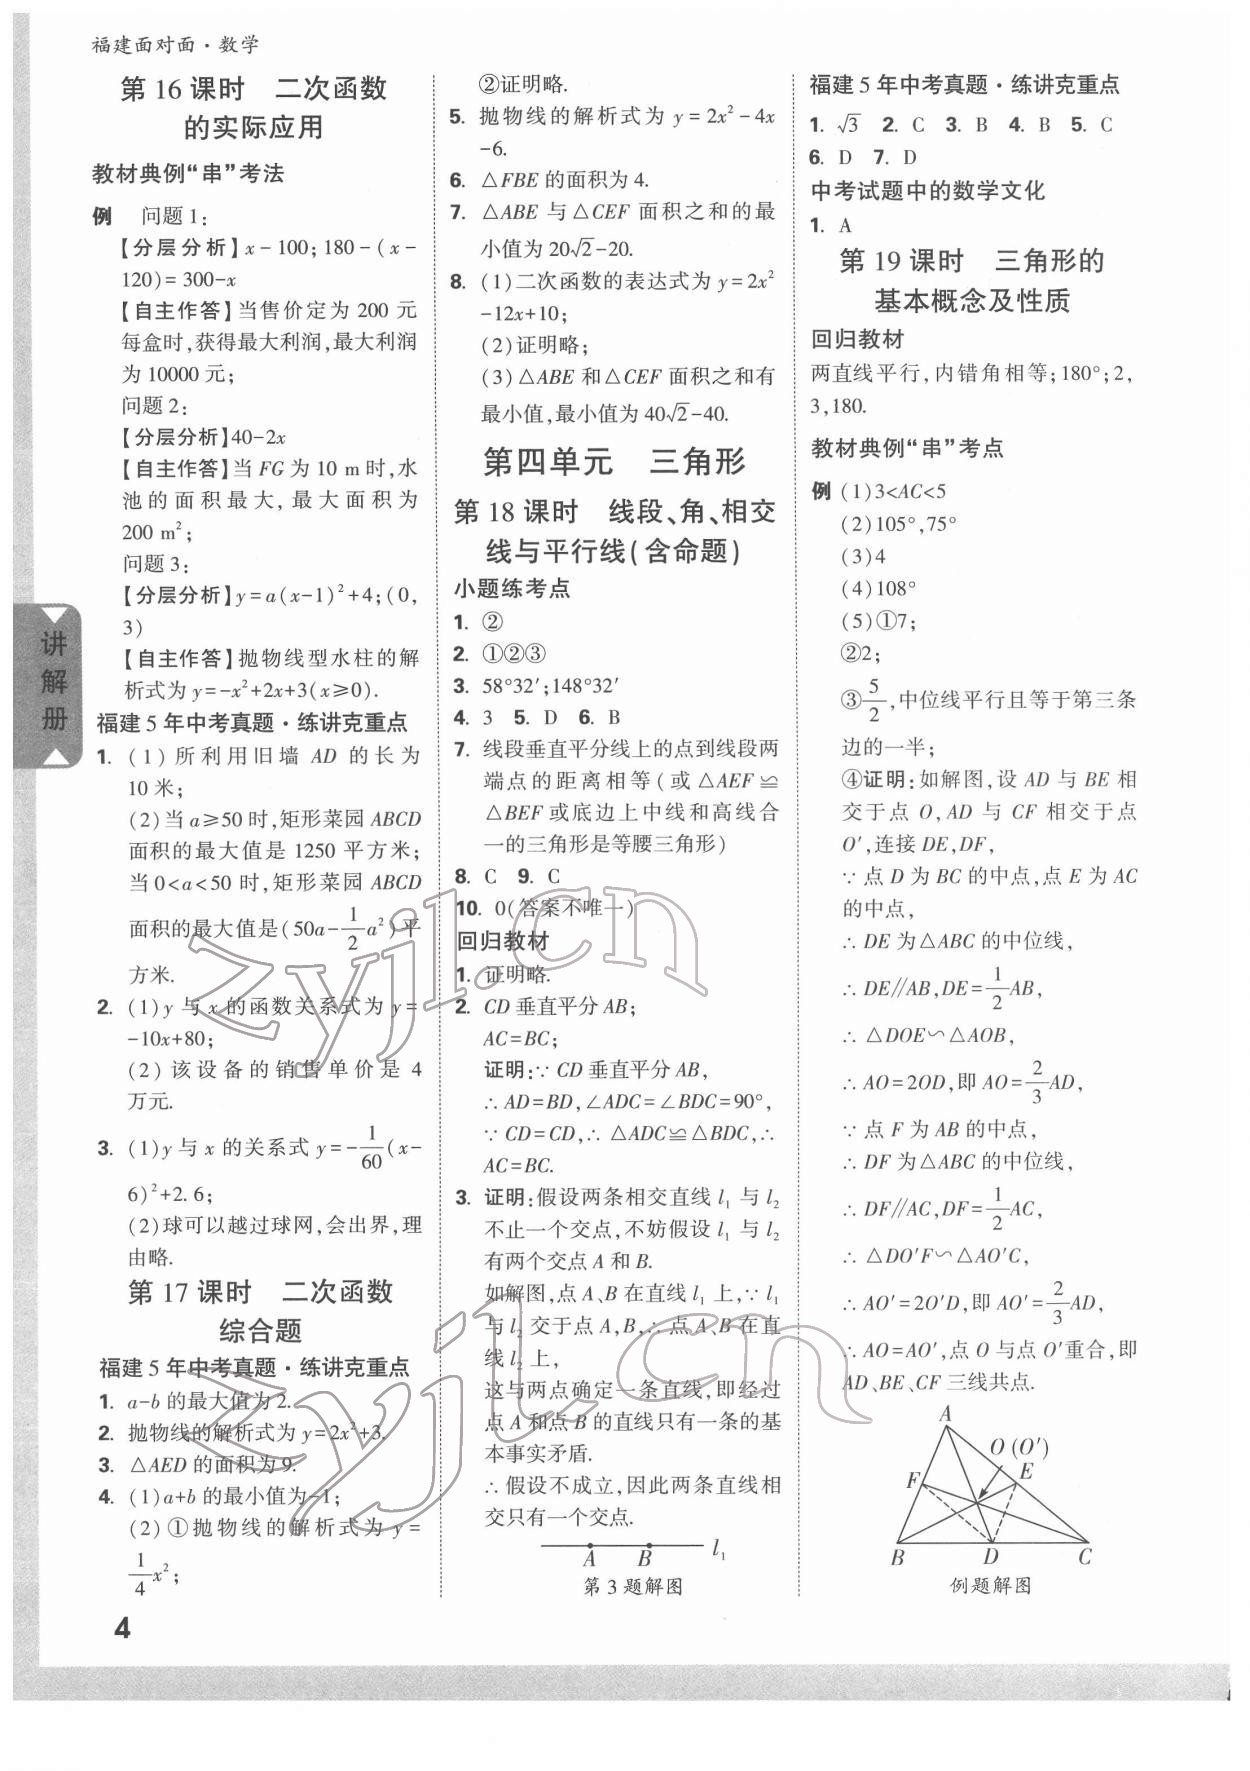 福建面对面·数学
第16课时 二次函数
的实际应用
教材典例“串”考法
例 问题1:
【分层分析】x-100;180-(x-
120)=300-x
【自主作答】当售价定为200元
每盒时,获得最大利润,最大利润
为10000元;
问题2:
【分层分析】40-2x
【自主作答】当FG为10 m时,水
池的面积最大,最大面积为
200 m²;
问题3:
【分层分析】y=a(x-1)²+4;(0,
3)
【自主作答】抛物线型水柱的解
析式为y=-x²+2x+3(x≥0).
福建5年中考真题·练讲克重点
1. (1)所利用旧墙AD的长为
10米;
(2)当a≥50时,矩形菜园ABCD
面积的最大值是1250平方米;
当0<a<50时,矩形菜园ABCD
面积的最大值是(50a-1/2a²)平
方米.
2. (1)y与x的函数关系式为y=
-10x+80;
(2)该设备的销售单价是4
万元.
3. (1)y与x的关系式y=-1/60(x-
6)²+2.6;
(2)球可以越过球网,会出界,理
由略.
第17课时 二次函数
综合题
福建5年中考真题·练讲克重点
1. a-b的最大值为2.
2. 抛物线的解析式为y=2x²+3.
3. △AED的面积为9.
4. (1)a+b的最小值为-1;
(2)①抛物线的解析式为y=
1/4x²;
②证明略.
5. 抛物线的解析式为y=2x²-4x
-6.
6. △FBE的面积为4.
7. △ABE与△CEF面积之和的最
小值为20√2-20.
8. (1)二次函数的表达式为y=2x²
-12x+10;
(2)证明略;
(3)△ABE和△CEF面积之和有
最小值,最小值为40√2-40.
第四单元 三角形
第18课时 线段、角、相交
线与平行线(含命题)
小题练考点
1. ②
2. ①②③
3. 58°32′;148°32′
4. 3 5. D 6. B
7. 线段垂直平分线上的点到线段两
端点的距离相等(或△AEF≌
△BEF或底边上中线和高线合
一的三角形是等腰三角形)
8. C 9. C
10. 0(答案不唯一)
回归教材
1. 证明略.
2. CD垂直平分AB;
AC=BC;
证明:∵CD垂直平分AB,
∴AD=BD,∠ADC=∠BDC=90°,
∵CD=CD,∴△ADC≌△BDC,∴
AC=BC.
3. 证明:假设两条相交直线l₁与l₂
不止一个交点,不妨假设l₁与l₂
有两个交点A和B.
如解图,点A、B在直线l₁上,∵l₁
与l₂交于点A,B,∴点A、B在直
线l₂上,
这与两点确定一条直线,即经过
点A和点B的直线只有一条的基
本事实矛盾.
∴假设不成立,因此两条直线相
交只有一个交点.
A B l₁
第3题解图
福建5年中考真题·练讲克重点
1. √3 2. C 3. B 4. B 5. C
6. D 7. D
中考试题中的数学文化
1. A
第19课时 三角形的
基本概念及性质
回归教材
两直线平行,内错角相等;180°;2,
3,180.
教材典例“串”考点
例 (1)3<AC<5
(2)105°,75°
(3)4
(4)108°
(5)①7;
②2;
③5/2,中位线平行且等于第三条
边的一半;
④证明:如解图,设AD与BE相
交于点O,AD与CF相交于点
O′,连接DE,DF,
∵点D为BC的中点,点E为AC
的中点,
∴DE为△ABC的中位线,
∴DE∥AB,DE=1/2AB,
∴△DOE∽△AOB,
∴AO=2OD,即AO=2/3AD,
∵点F为AB的中点,
∴DF为△ABC的中位线,
∴DF∥AC,DF=1/2AC,
∴△DO′F∽△AO′C,
∴AO′=2O′D,即AO′=2/3AD,
∴AO=AO′,点O与点O′重合,即
AD、BE、CF三线共点.
A
O(O′)
F E
B D C
例题解图
讲解册
4
zyjl.cn
zyjl.cn